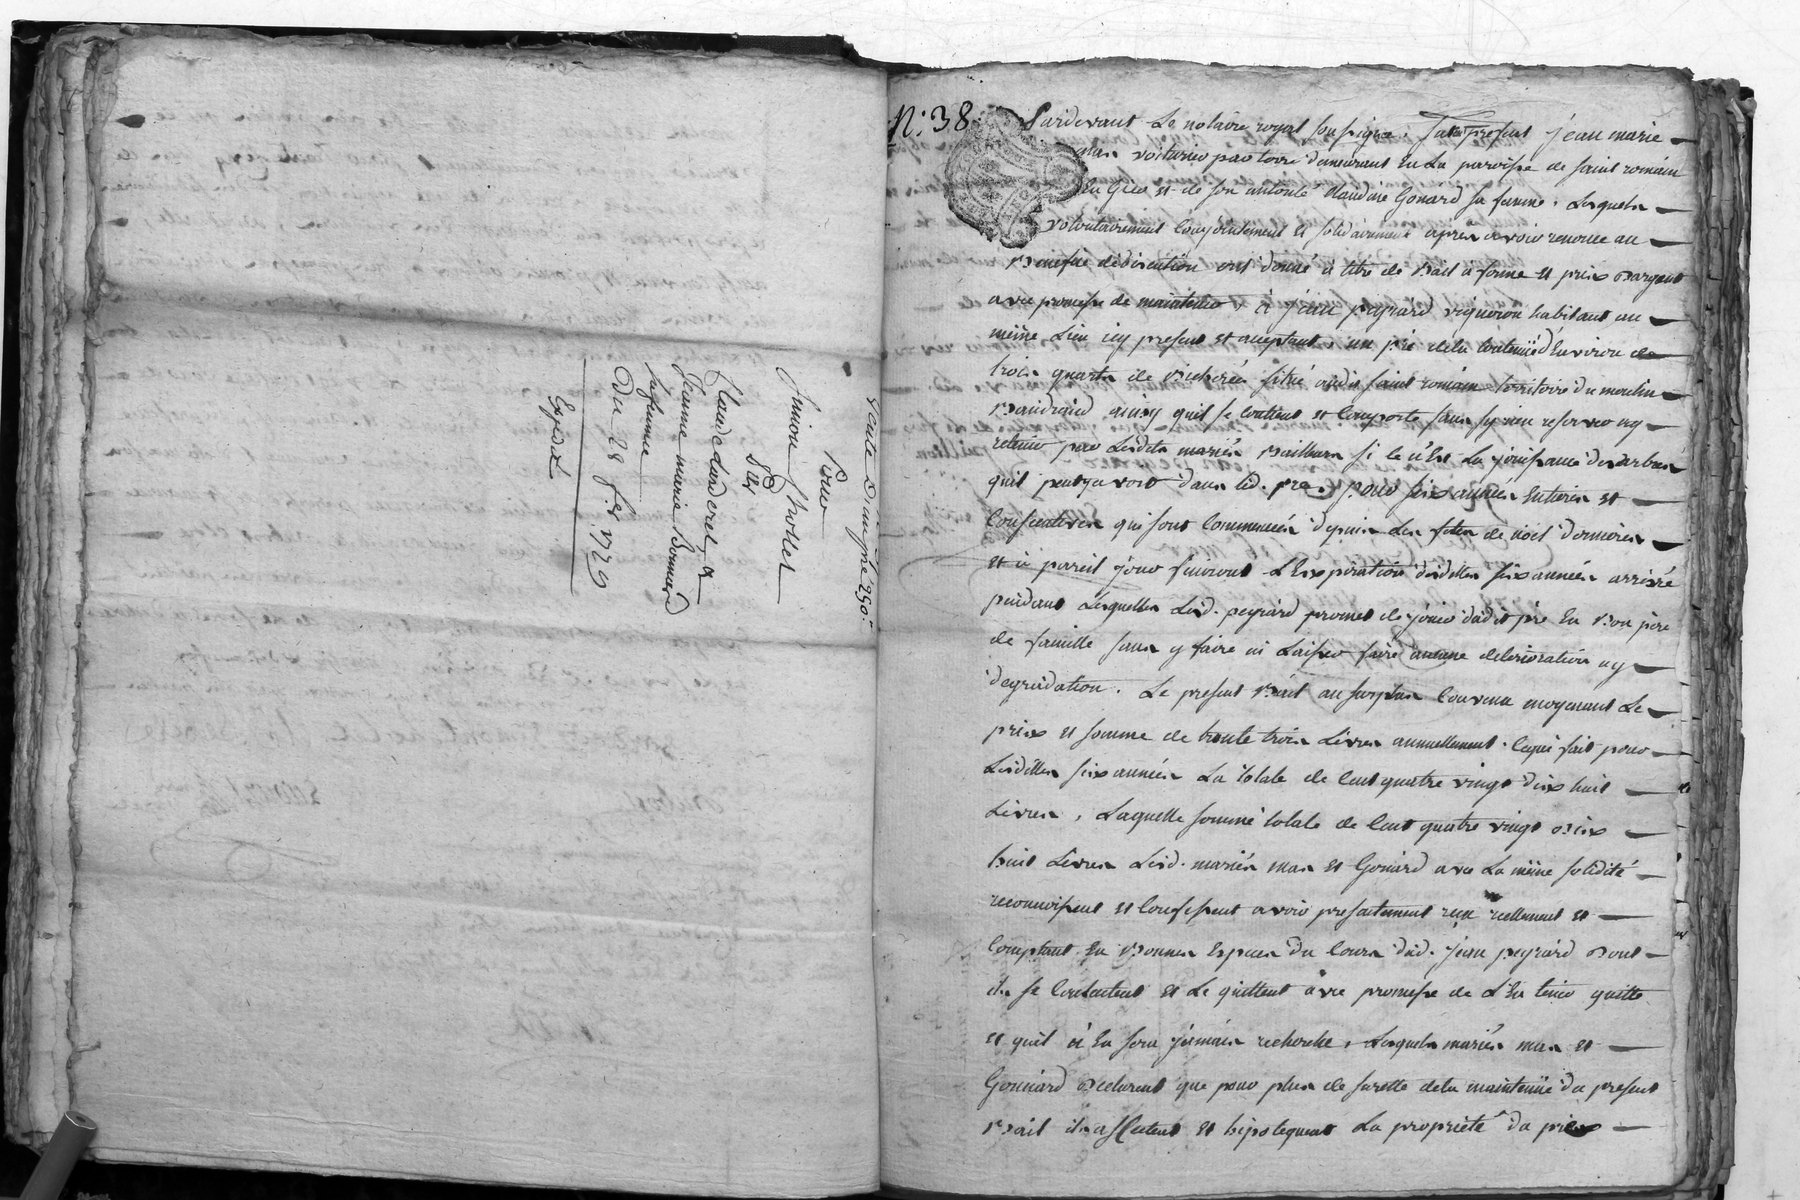 Vente d'une vigne 250#
Pour
Simon Thollet
Par
Claude danderel, et
Jeanne marie Bonnard
Sa femme
Du 28 fer. 1779
Expedié
N.° 38.
Pardevant Le notaire royal soussigné. fut present jean marie
mas voiturier par terre demeurant En La paroisse de saint romain
En Gier et de son autorité Claudine Gonard sa femme. Lesquels
volontairement Conjointement et solidairement après avoir renoncé au
Benefice dediscution ont donné à titre de Bail a ferme et prix Dargent
avec promesse de maintenir, à jean peyrard vigneron habitant au
même Lieu icy present et acceptant, un pré dela Contenüe d'Environ de
trois quarts de Bicherée situé audit saint romain territoire du moulin
Baudrand ainsy quil se Contient et Comporte sans sy rien reserver ny
retenir par Lesdits mariés Bailleurs si ce n'Est La jouissance des arbres
quil peut y avoir dans led. pré. pour six années Entieres et
Consecutives qui sont Commencées depuis Les fetes de noël dernieres
et à pareil jour finiront L'Expiration desdittes six années arrivée
pendant Lesquelles Led. peyrard promet de jouir dudit pré En Bon pere
de famille sans y faire ni Laisser faire aucune deterioration ny
degradation. Le present Bail au surplus Convenu moyenant Le
prix et somme de trente trois Livres annuellement. Cequi fait pour
Lesdittes six années La totale de Cent quatre vingt dix huit
Livres, Laquelle somme totale de Cent quatre vingt Dix
huit Livres Lesd. mariés mas et Gonard avec La même solidité
reconnoissent et Confessent avoir presentement reçu reellement et
Comptant En Bonnes Especes du Cours dud. jean peyrard Dont
ils se Contentent et Le quittent avec promesse de L'En tenir quitte
et quil n'En sera jamais recherché, Lesquels mariés mas et
Gonnard Declarent que pour plus de surette dela maintenüe du present
Bail ils affectent et hipotequent La propriété du